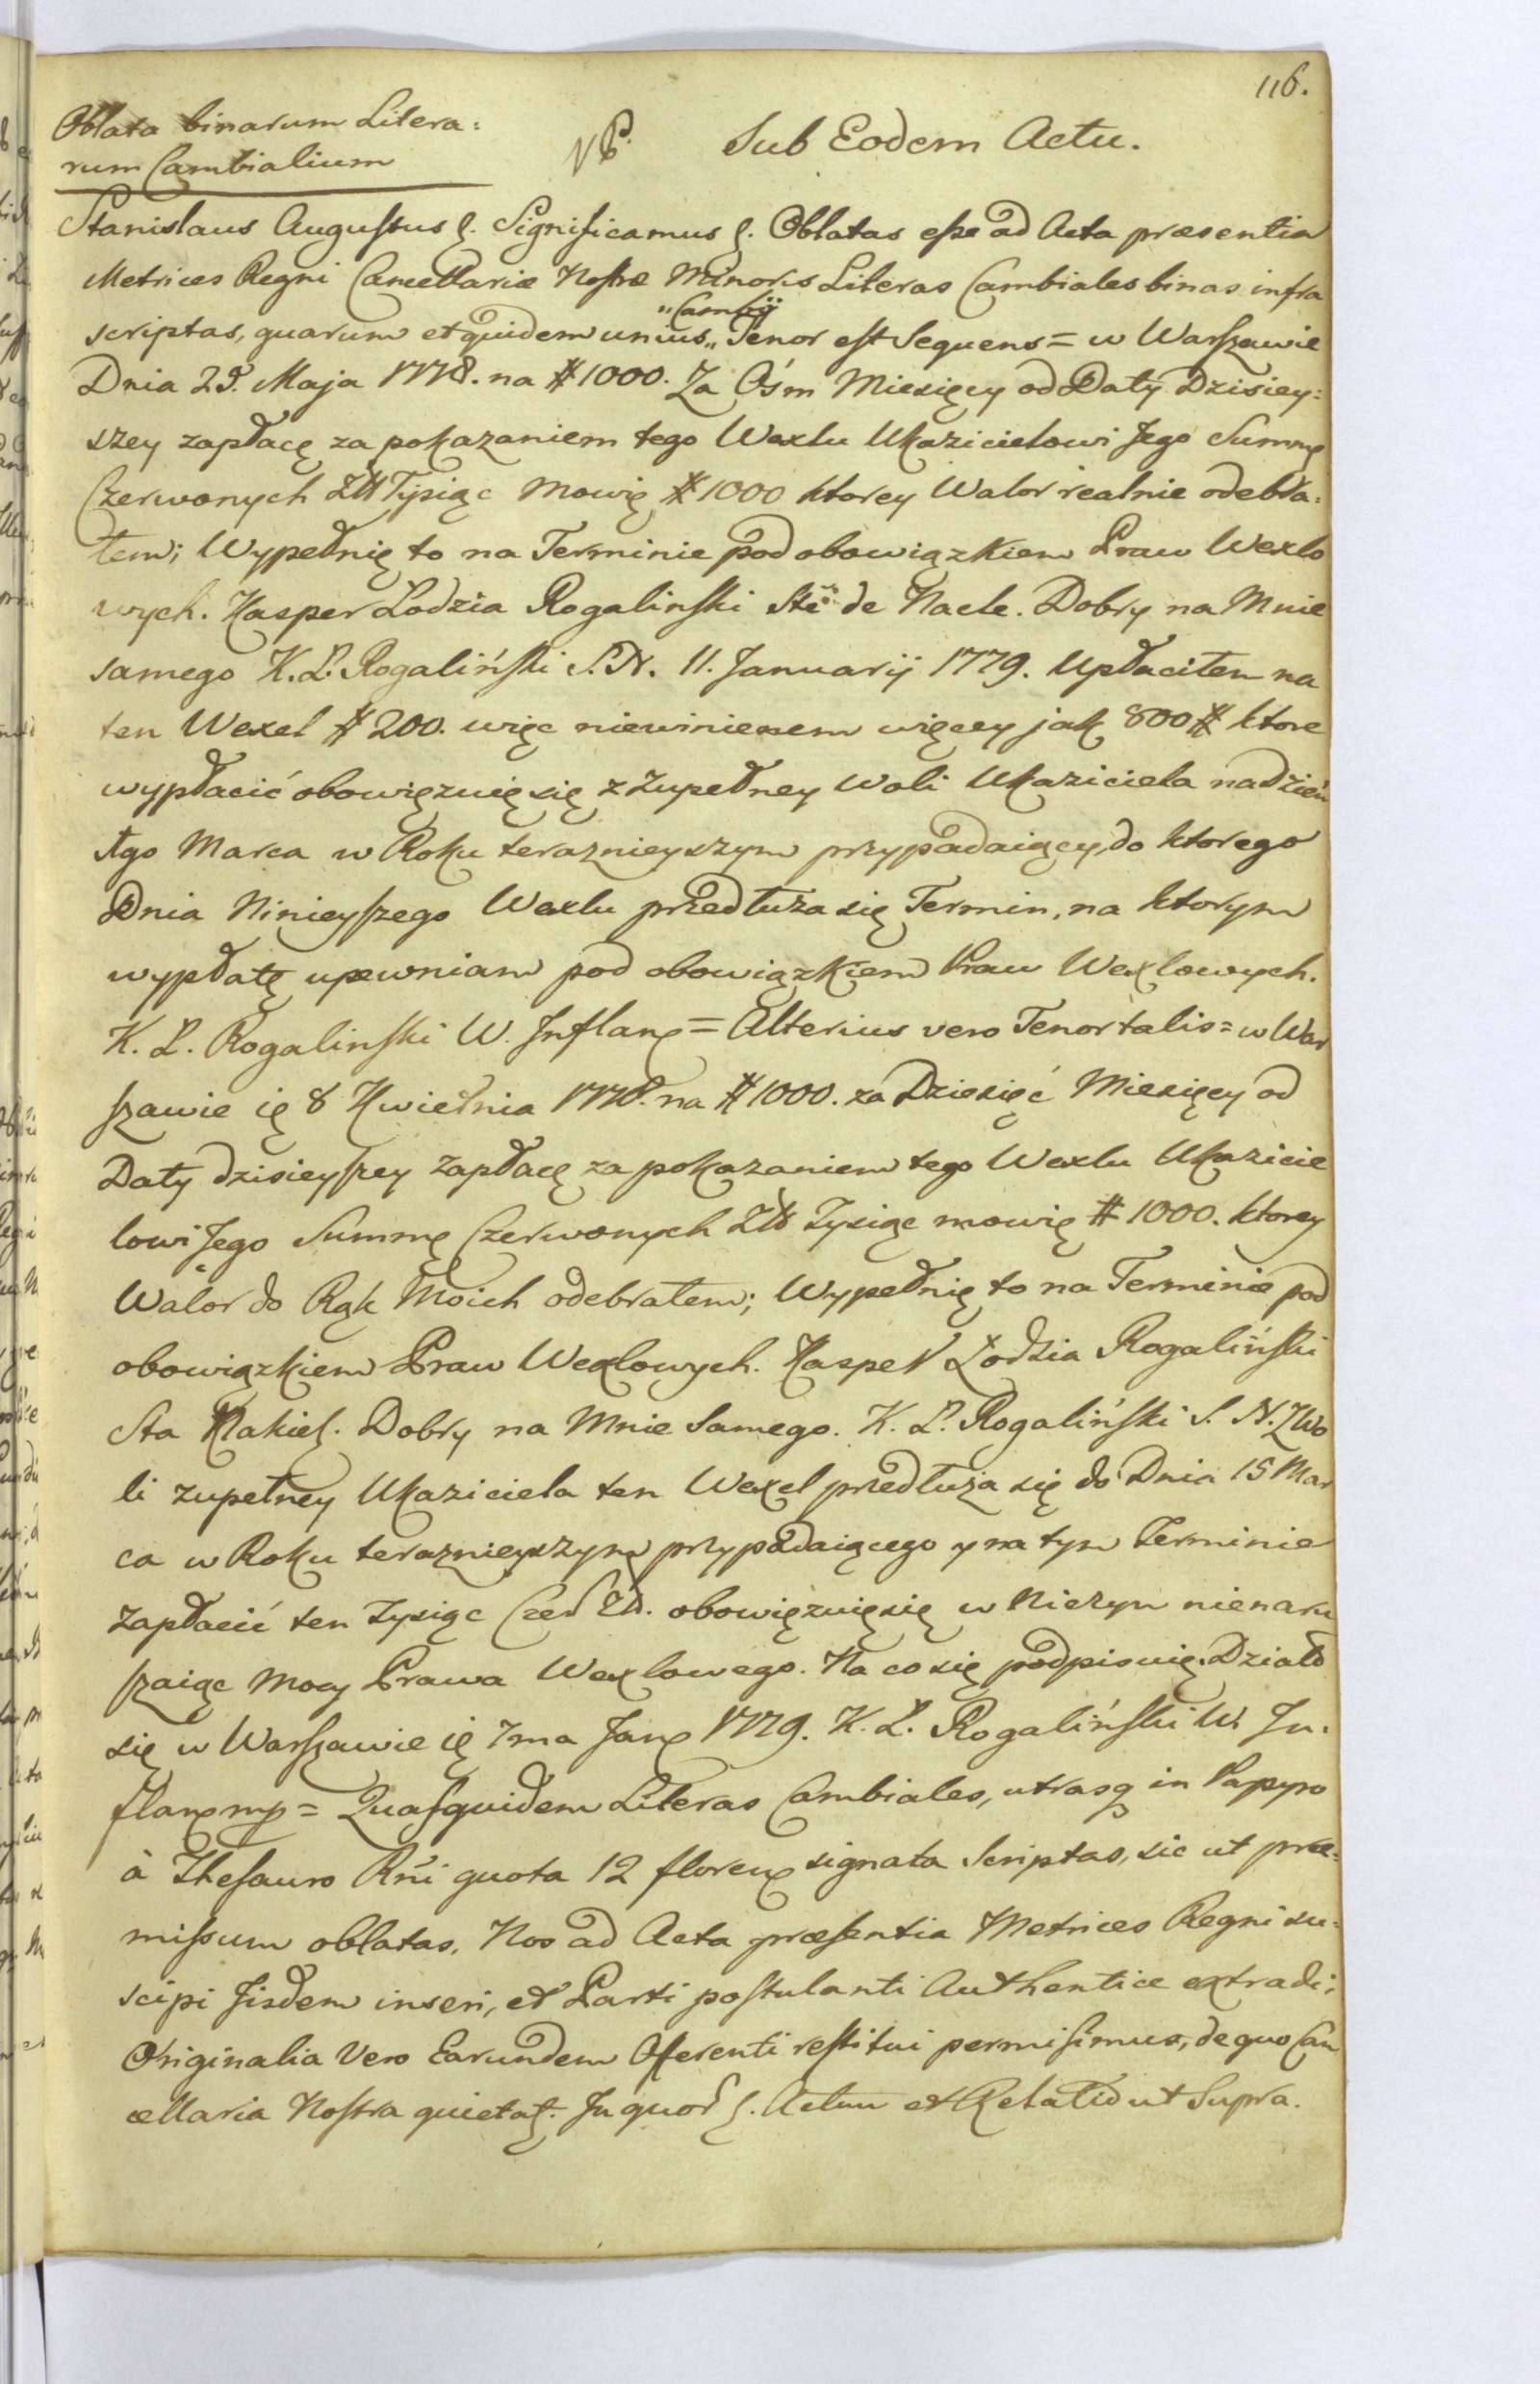 116.
Oblata binarum Litera:
rum Cambialium
NB. Sub Eodem Actu.
Stanislaus Augustus &. Significamus &. Oblatas esse ad Acta præsentia
Metrices Regni Cancellariæ Nostræ Minoris Literas Cambiales binas infra
scriptas, quarum et quidem unius „ Tenor est Sequens = w Warszawie
„Cambij
Dnia 29. Maja 1778. na # 1000. Za Ośm Miesięcy od Daty Dzisiey:
szey zapłacę za pokazaniem tego Wexlu Ukazicielowi Jego Summę
Czerwonych Złł Tysiąc mowię # 1000 ktorey Walor realnie odebra:
łem; Wypełnię to na Terminie pod obowiązkiem Praw Wexlo
wych. Kasper Lodzia Rogalinski Sta de Nacle. Dobry na Mnie
samego K. L. Rogaliński S. N. 11. Januarij 1779. Upłaciłem na
ten Wexel # 200. więc niewinienem więcey jak 800 # ktore
wypłacić obowięzuię się z zupełney Woli Ukaziciela na dzień
1go Marca w Roku teraznieyszym przypadaiący, do ktorego
Dnia Ninieyszego Wexlu przedłuża się Termin, na ktorym
wypłatę upewniam pod obowiązkiem Praw Wexlowych.
K. L. Rogalinski W. Inflan = Alterius vero Tenor talis = w War
szawie ię 8 Kwietnia 1778. na # 1000. za Dziesięć Miesięcy od
Daty dzisieyszey zapłacę za pokazaniem tego Wexlu Ukazicie
lowi Jego Summę Czerwonych Złł Tysiąc mowię # 1000. ktorey
Walor do Rąk Moich odebrałem; Wypełnię to na Terminie pod
obowiązkiem Praw Wexlowych. Kasper Łodzia Rogaliński
Sta Nakiel. Dobry na Mnie Samego. K. L. Rogaliński S. N. Z Wo
li zupełney Ukaziciela ten Wexel przedłuża się do Dnia 15 Mar
ca w Roku teraznieyszym przypadaiącego y na tym Terminie
zapłacić ten Tysiąc Czer Zł. obowięzuię się w Niczym nienaru
szaiąc mocy Prawa Wexlowego. Na co się podpisuię. Działo
się w Warszawie ię 7ma Jan 1779. K. L. Rogaliński W. In:
flan mp = Quasquidem Literas Cambiales, utrasq in Papyro
à Thesauro Rñi quota 12 floren signata Scriptas, sic ut præ:
missum oblatas, Nos ad Acta præsentia Metrices Regni su:
scipi Iisdem inseri, et Parti postulanti Authentice extradi;
Originalia Vero Earundem Offerenti restitui permisimus, de quo Can
cellaria Nostra quietat. In quor &. Actum et Relatio ut Supra.